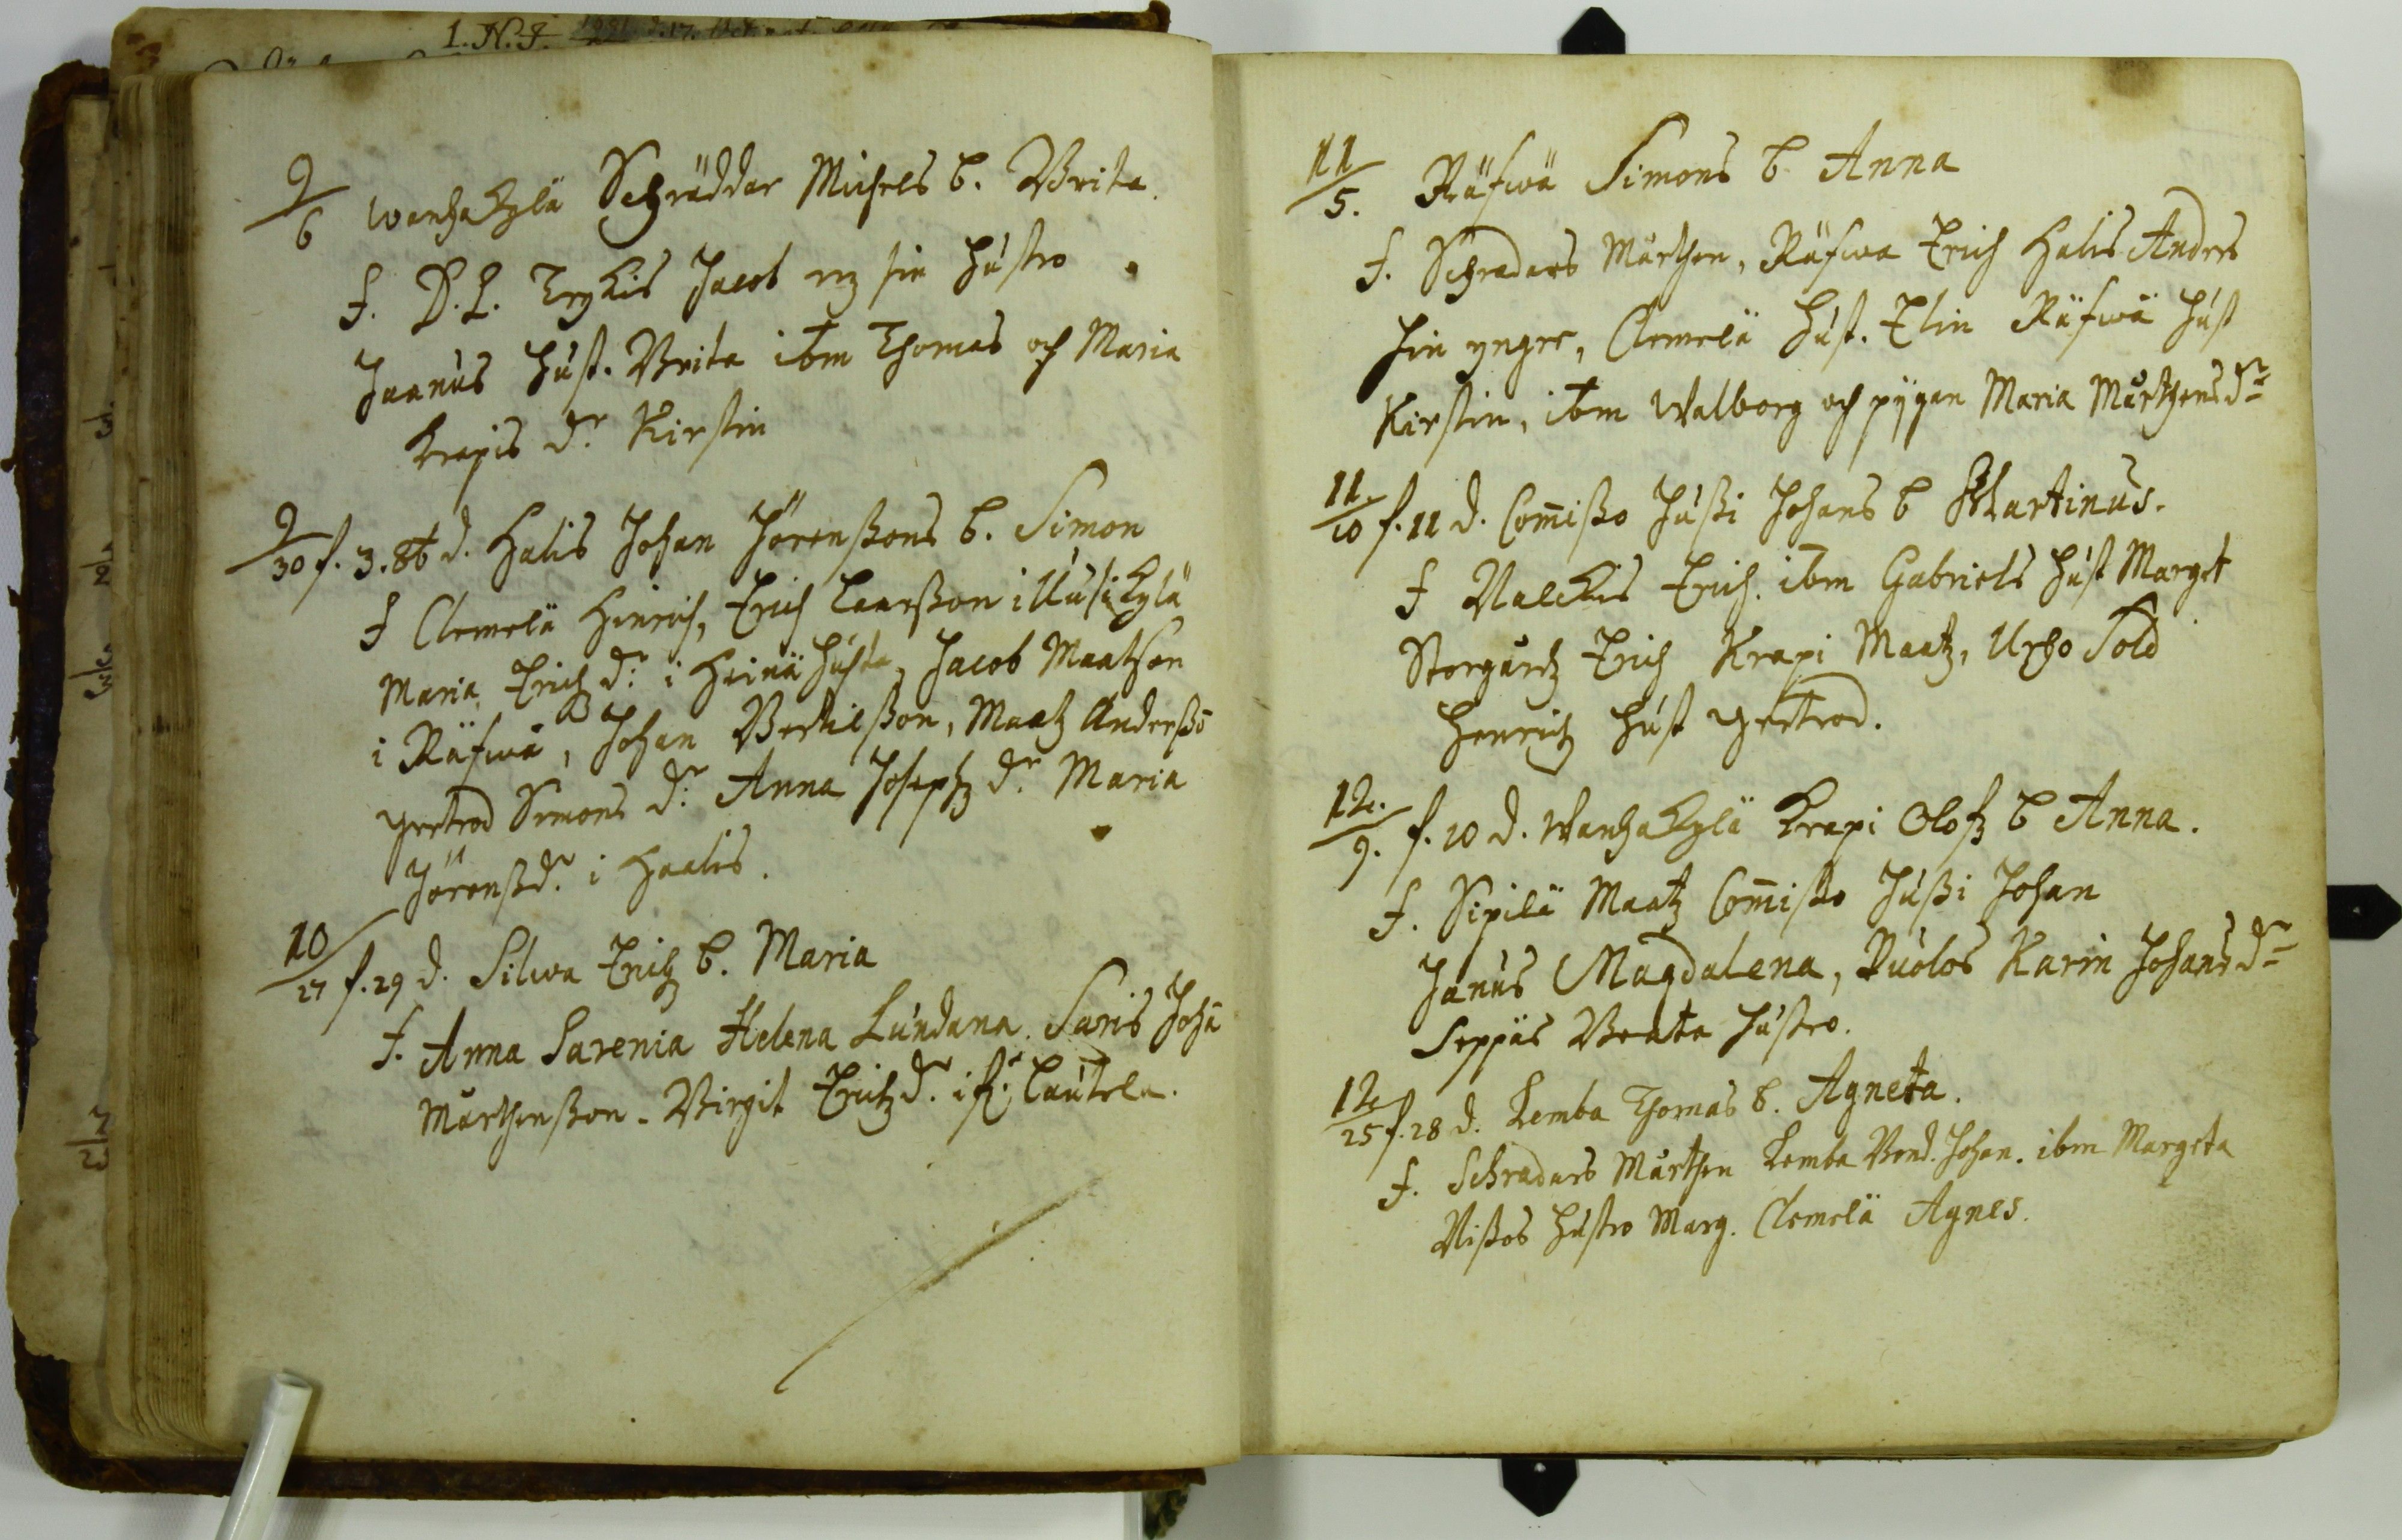 1. N. I.
9/6 wanhakylä Schräddar Michels b. Brita.
f. D. L. Erkis Jacob mz sin hústro
Jaanús húst. Brita ibm Thomas och Maria
Krapis dr Kirstin
9/30 f. 3. 8b d. Halis Johan Jörenßons b. Simon
f Clemelä Hinrich, Erich Larßon i Uúsikylä
Maria Erichz dr i Heinä húhta, Jacob Maatson
i Räfwä, Johan Bertilßon, Maatz Anderßō
gertrod Simons dr Anna Josephz dr Maria
Jörenßdr i Haalis.
10/27 f. 29 d. Silwa Erichz b. Maria
f. Anna Sarenia Helena Lúndana. Saris Johā
Mårthenßon. Birgit Erichzdr i Lautela.
11/5. Räfwä Simons b Anna
f. Schradars Mårthen, Räfwa Erich Halis Andrs
hin yngre, Clemelä Húst. Elin Räfwä húst
Kirstin, ibm Walborg och pigan Maria Mårthensdr
11/10 f. 11 d. Com̄ißo Júßi Johans b Martinus.
f Nalckis Erich. ibm Gabriels húst Marget
Storgårdz Erich Krapi Maatz, Urho Sold
Henrichz húst gertrod.
12/9. f. 10 d. Wanhakylä Krapi Olofz b Anna.
f. Sipilä Maatz Com̄ißo Júßi Johan
Janús Magdalena, Púolos Karin Johansdr
Seppäs Beata hústro.
12/25 f. 28 d. Lemba Thomas b. Agneta.
f. Schradars Mårthen Lemba Bend. Johan. ibm Margeta
Nißos hústro Marg. Clemelä Agnes.